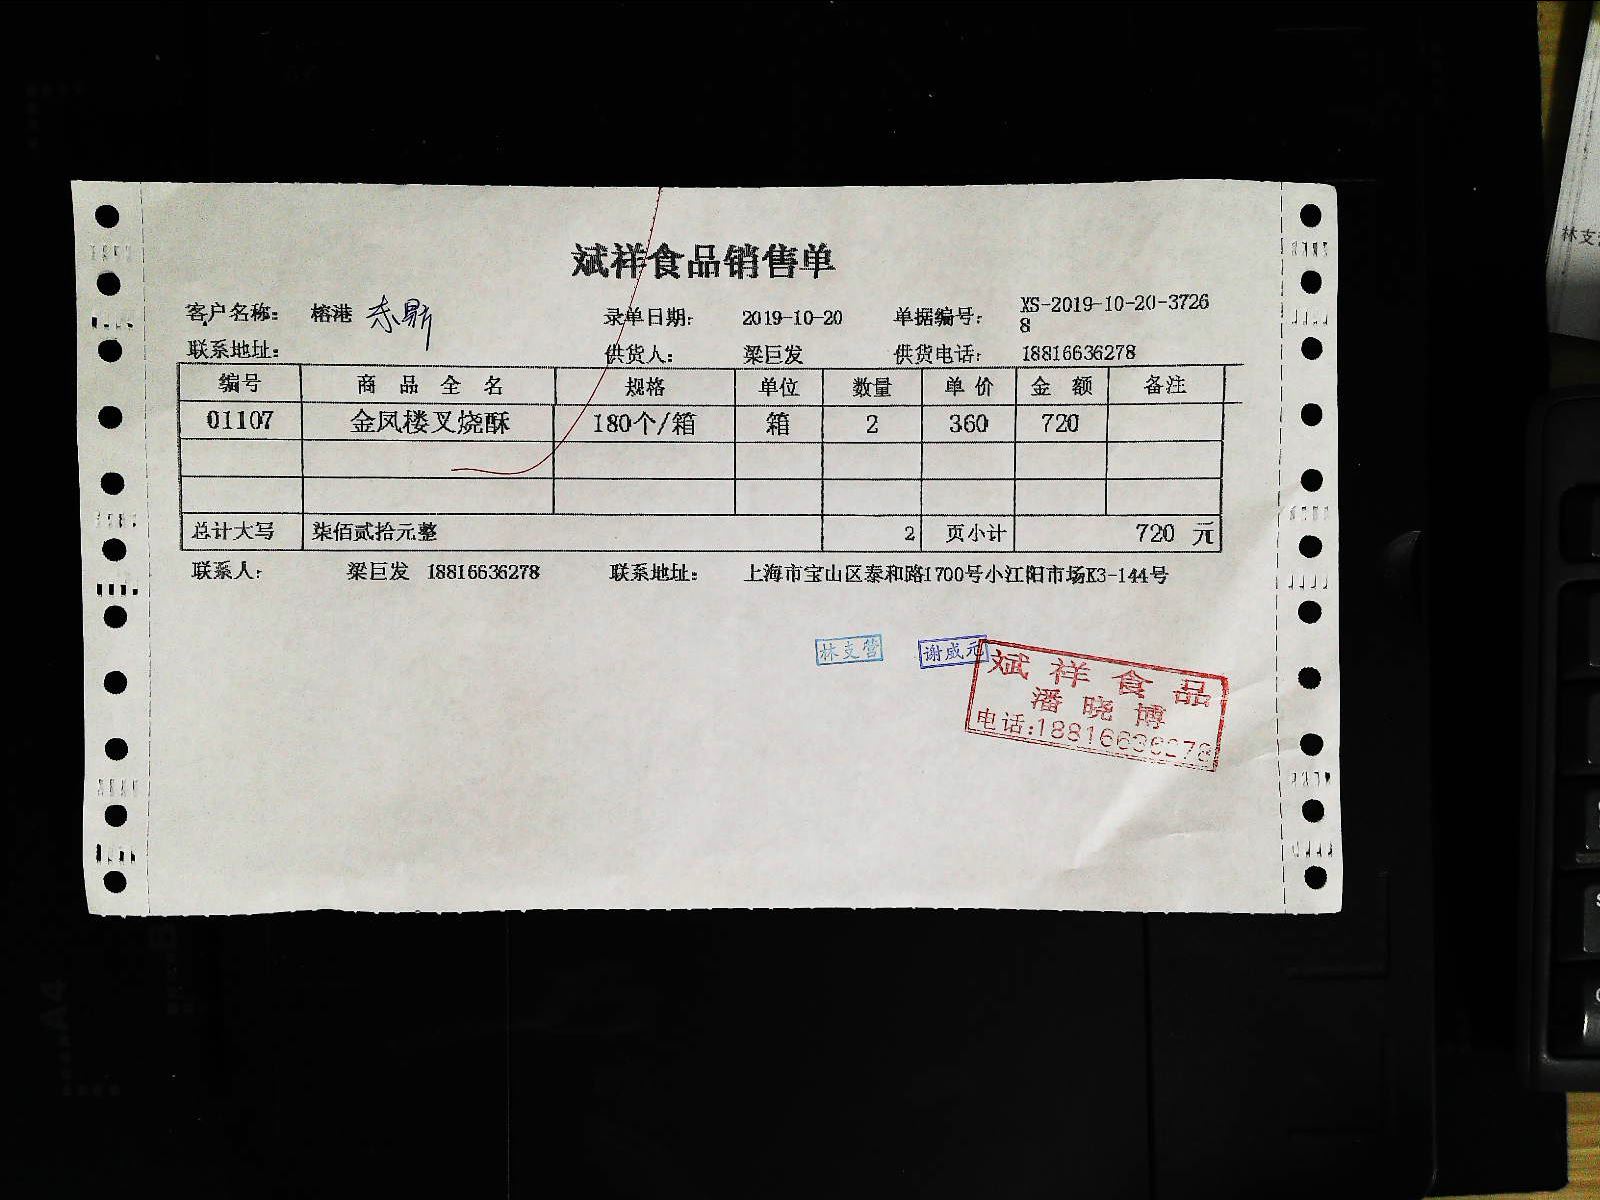 斌祥食品销售单
客户名称: 榕港 录单日期: 2019-10-20 单据编号: XS-2019-10-20-3726
8
联系地址: 供货人: 梁巨发 供货电话: 18816636278
编号 商品全名 规格 单位 数量 单价 金额 备注
01107 金凤楼叉烧酥 180个/箱 箱 2 360 720
总计大写 柒佰贰拾元整 2 页小计 720 元
联系人: 梁巨发 18816636278 联系地址: 上海市宝山区泰和路1700号小江阳市场K3-144号
林支营 谢成元
斌祥食品
潘晓博
电话:18816636278
林支